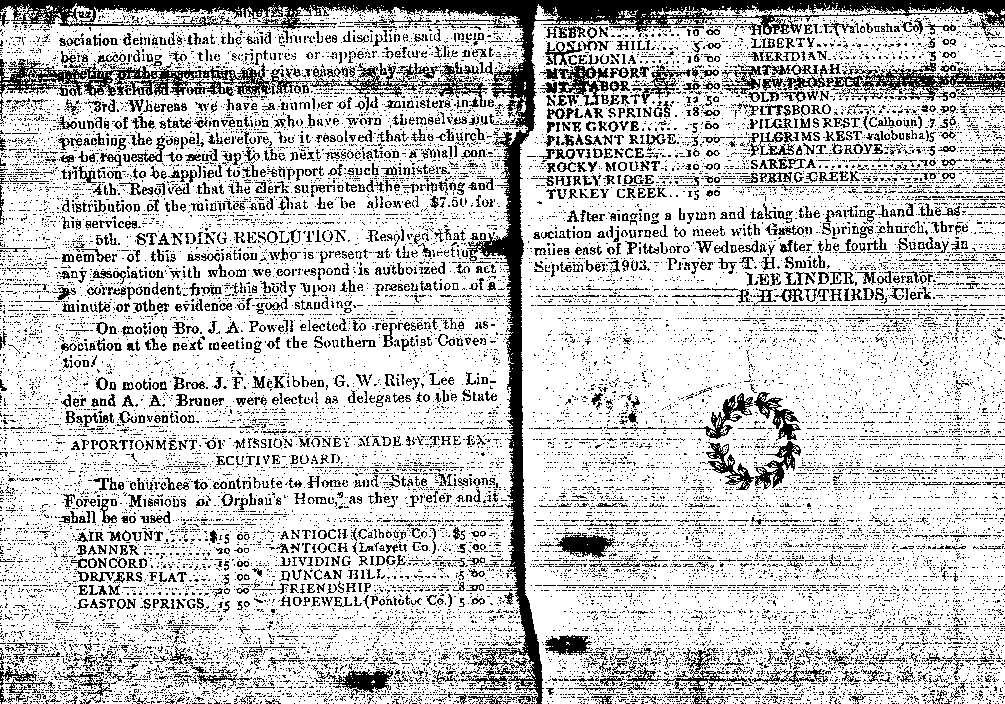 sociation demands that the said churches discipline said mem-
bers according to the scriptures or appear before the next
meeting of the association and give reasons why they should
not be excluded from the association.
3rd. Whereas we have a number of old ministers in the
bounds of the state convention who have worn themselves out
preaching the gospel, therefore, be it resolved that the church-
es be requested to send up to the next association a small con-
tribution to be applied to the support of such ministers.
4th. Resolved that the clerk superintend the printing and
distribution of the minutes and that he be allowed $7.50 for
his services.
5th. STANDING RESOLUTION. Resolved that any
member of this association who is present at the meeting of
any association with whom we correspond is authorized to act
as correspondent from this body upon the presentation of a
minute or other evidence of good standing.
On motion Bro. J. A. Powell elected to represent the as-
sociation at the next meeting of the Southern Baptist Conven-
tion.
On motion Bros. J. F. McKibben, G. W. Riley, Lee Lin-
der and A. A. Bruner were elected as delegates to the State
Baptist Convention.
APPORTIONMENT OF MISSION MONEY MADE BY THE EX-
ECUTIVE BOARD
"The churches to contribute to Home and State Missions,
Foreign Missions or Orphan's Home," as they prefer and it
shall be so used
AIR MOUNT......$15 00
BANNER .......... 20 00
CONCORD.......... 15 00
DRIVERS FLAT.... 5 00
ELAM............. 20 00
GASTON SPRINGS. 15 50
ANTIOCH (Calhoun Co.) ..$5 00
ANTIOCH (Lafayett Co ) ... 5 00
DIVIDING RIDGE......... 5 00
DUNCAN HILL........... 5 00
FRIENDSHIP............. 8 00
HOPEWELL (Pontotoc Co.) 5 00
HEBRON............ 10 00
LONDON HILL..... 5 00
MACEDONIA....... 10 00
MT. COMFORT.....
MT. TABOR........ 10 00
NEW LIBERTY.... 12 50
POPLAR SPRINGS. 18 00
PINE GROVE...... 5 00
PLEASANT RIDGE. 5 00
PROVIDENCE...... 10 00
ROCKY MOUNT.... 10 00
SHIRLY RIDGE.... 5 00
TURKEY CREEK... 15 00
HOPEWELL (Yalobusha Co) 5 00
LIBERTY................ 5 00
MERIDIAN.............. 5 00
MT. MORIAH............
NEW PROSPECT
OLD TOWN.............. 7 50
PITTSBORO............. 20 00
PILGRIMS REST (Calhoun) 7 50
PILGRIMS REST Yalobusha) 5 00
PLEASANT GROVE........ 5 00
SAREPTA............... 10 00
SPRING CREEK.......... 10 00
After singing a hymn and taking the parting hand the as-
sociation adjourned to meet with Gaston Springs church, three
miles east of Pittsboro Wednesday after the fourth Sunday in
September 1903. Prayer by T. H. Smith.
LEE LINDER, Moderator.
R H. GRUTHIRDS, Clerk.